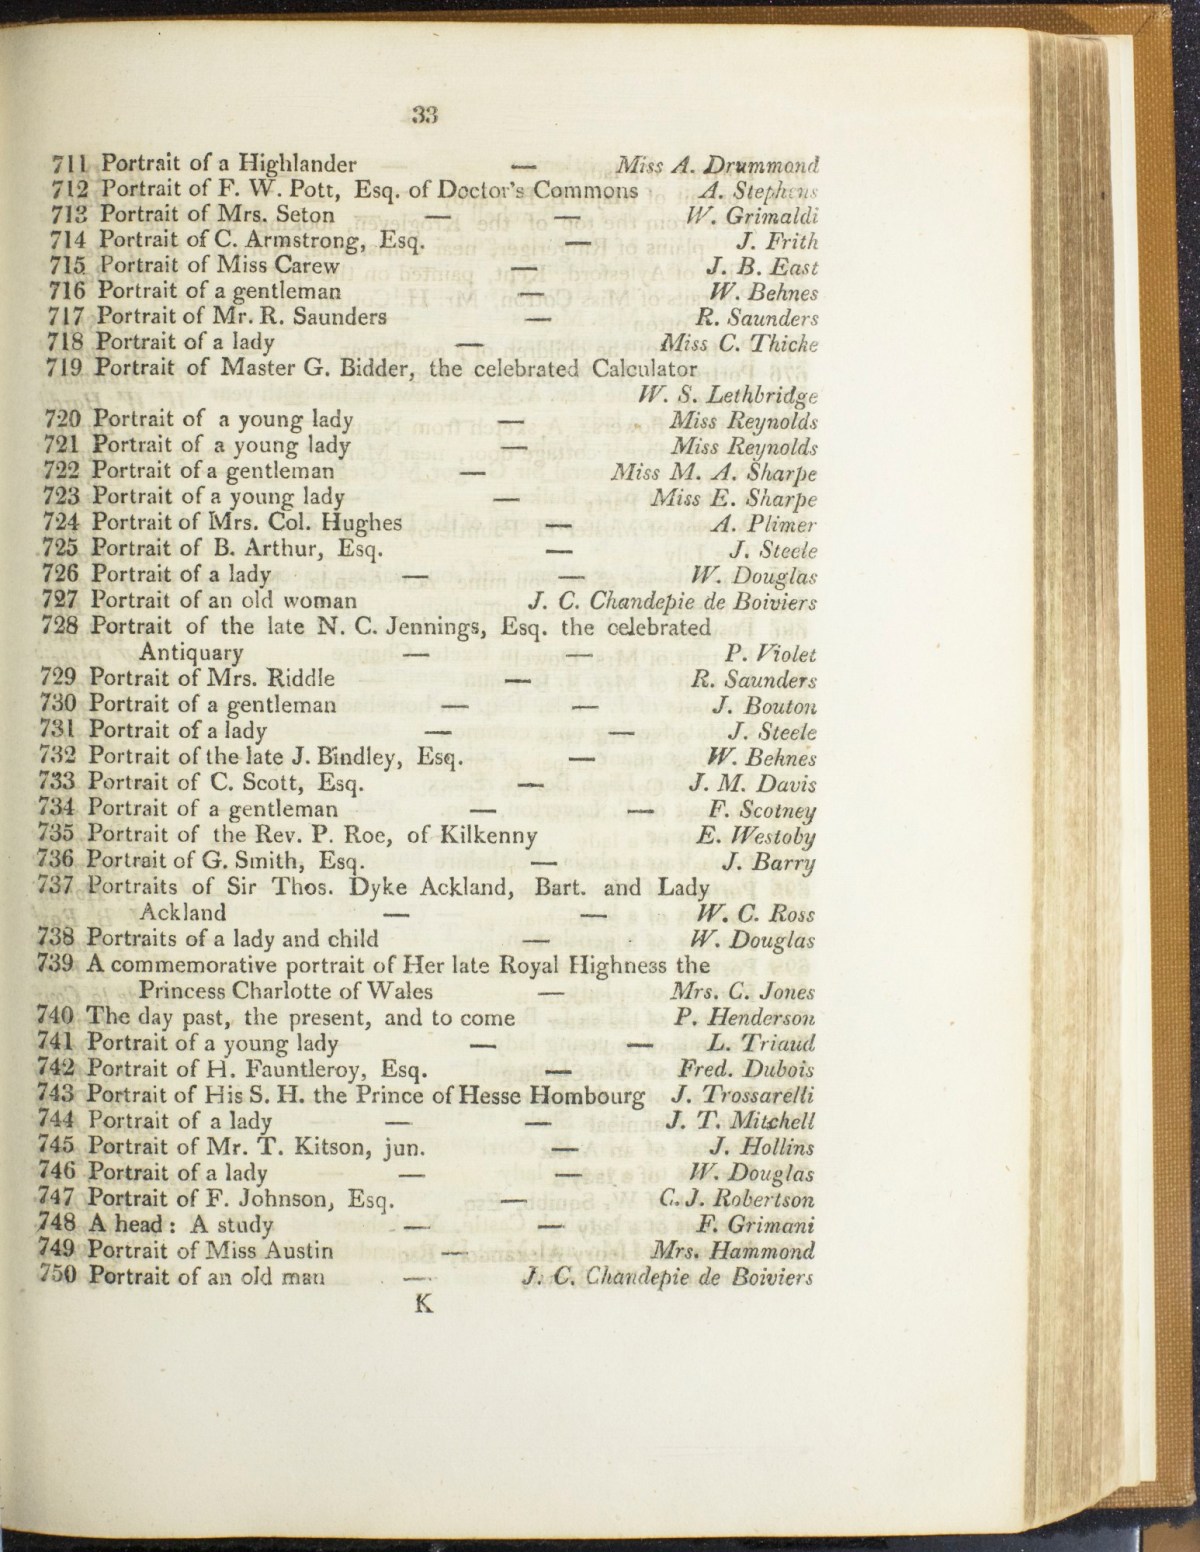 33
711 Portrait of a Highlander — Miss A. Drummond
712 Portrait of F. W. Pott, Esq. of Doctor's Commons A. Stephens
713 Portrait of Mrs. Seton — — W. Grimaldi
714 Portrait of C. Armstrong, Esq. — J. Frith
715 Portrait of Miss Carew — J. B. East
716 Portrait of a gentleman — W. Behnes
717 Portrait of Mr. R. Saunders — R. Saunders
718 Portrait of a lady — Miss C. Thicke
719 Portrait of Master G. Bidder, the celebrated Calculator
W. S. Lethbridge
720 Portrait of a young lady — Miss Reynolds
721 Portrait of a young lady — Miss Reynolds
722 Portrait of a gentleman — Miss M. A. Sharpe
723 Portrait of a young lady — Miss E. Sharpe
724 Portrait of Mrs. Col. Hughes — A. Plimer
725 Portrait of B. Arthur, Esq. — J. Steele
726 Portrait of a lady — — W. Douglas
727 Portrait of an old woman J. C. Chandepie de Boiviers
728 Portrait of the late N. C. Jennings, Esq. the celebrated
Antiquary — — P. Violet
729 Portrait of Mrs. Riddle — R. Saunders
730 Portrait of a gentleman — — J. Bouton
731 Portrait of a lady — — J. Steele
732 Portrait of the late J. Bindley, Esq. — W. Behnes
733 Portrait of C. Scott, Esq. — J. M. Davis
734 Portrait of a gentleman — — F. Scotney
735 Portrait of the Rev. P. Roe, of Kilkenny E. Westoby
736 Portrait of G. Smith, Esq. — J. Barry
737 Portraits of Sir Thos. Dyke Ackland, Bart. and Lady
Ackland — — W. C. Ross
738 Portraits of a lady and child — W. Douglas
739 A commemorative portrait of Her late Royal Highness the
Princess Charlotte of Wales — Mrs. C. Jones
740 The day past, the present, and to come P. Henderson
741 Portrait of a young lady — — L. Triaud
742 Portrait of H. Fauntleroy, Esq. — Fred. Dubois
743 Portrait of His S. H. the Prince of Hesse Hombourg J. Trossarelli
744 Portrait of a lady — — J. T. Mitchell
745 Portrait of Mr. T. Kitson, jun. — J. Hollins
746 Portrait of a lady — — W. Douglas
747 Portrait of F. Johnson, Esq. — C. J. Robertson
748 A head : A study — — F. Grimani
749 Portrait of Miss Austin — Mrs. Hammond
750 Portrait of an old man — J. C. Chandepie de Boiviers
K